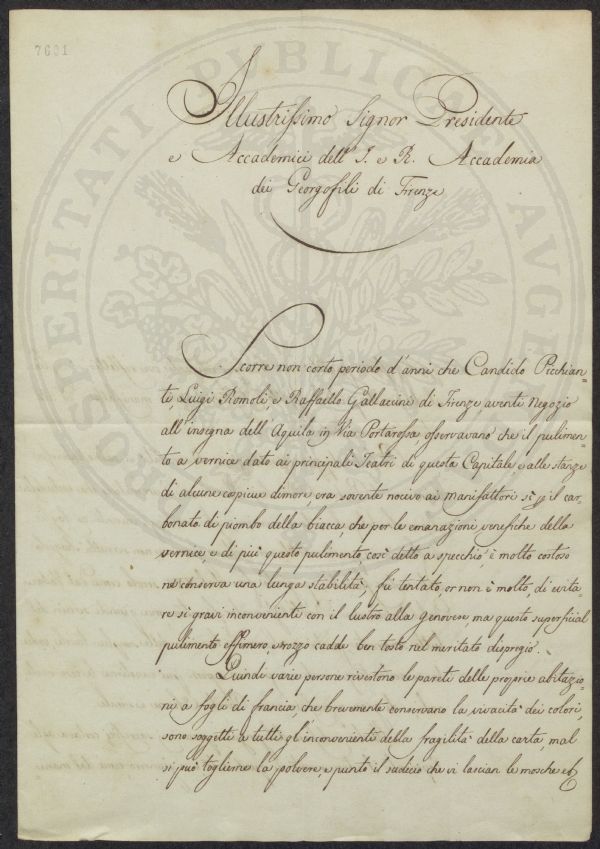 7601
PROSPERITATI PUBLICAE AUGENDAE
Illustrissimo Signor Presidente
e Accademici dell' I. e R. Accademia
dei Georgofili di Firenze
Scorre non corto periodo d'anni che Candido Picchian=
ti, Luigi Romoli, e Raffaello Gallaccini di Firenze aventi Negozio
all' insegna dell' Aquila in Via Portarossa, osservavano che il pulimen=
to a vernice dato ai principali Teatri di questa Capitale, e alle stanze
di alcune copicue dimore era sovente nocivo ai manifattori sì p il car=
bonato di piombo della biacca, che per le emanazioni venefiche della
vernice, e di più questo pulimento, così detto a specchio, è molto costoso
nè conserva una lunga stabilità; fù tentato, or non è molto, di evita=
re sì gravi inconvenienti con il lustro alla Genovese ma questo superficial
pulimento effimero, e rozzo cadde ben tosto nel meritato dispregio.
Quindi varie persone rivestono le pareti delle proprie abitazio=
ni a fogli di francia, che brevemente conservano la vivacità dei colori,
sono soggetti a tutti gl'inconvenienti della fragilità della carta, mal
si può toglierne la polvere, e punto il sudicio che vi lascian le mosche ed